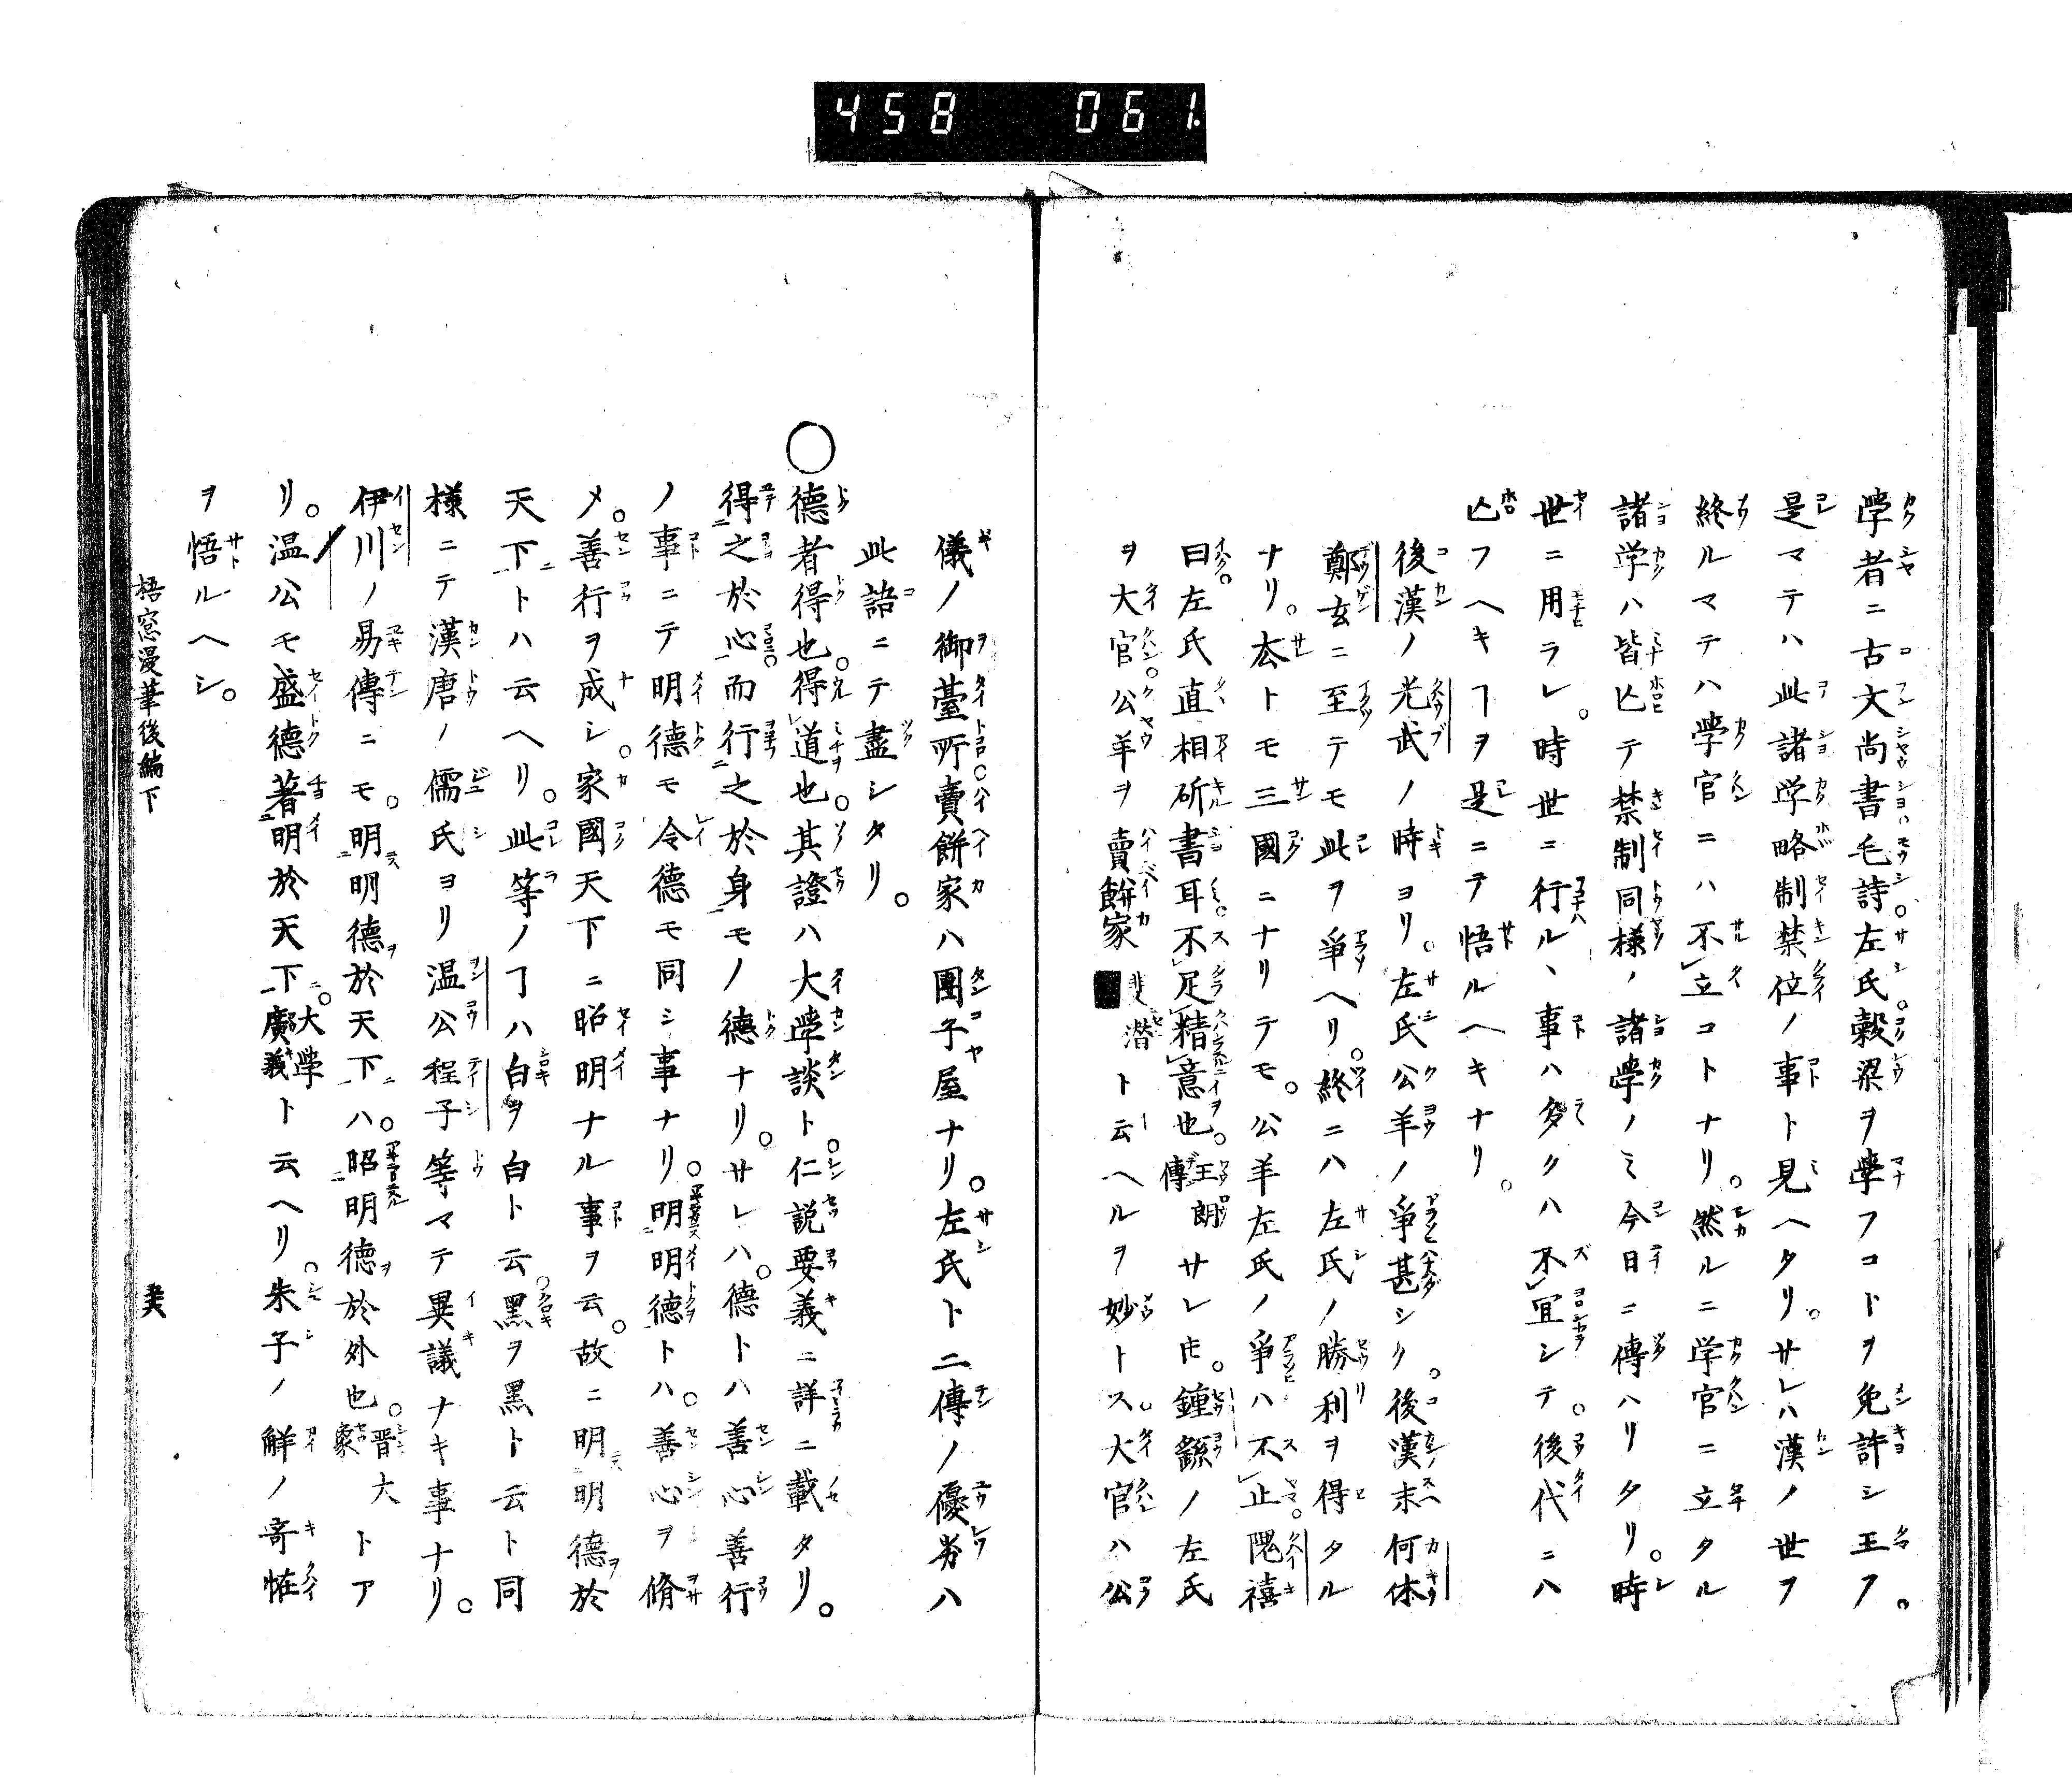 458 061.
學者ニ古文尚書毛詩。左氏穀梁ヲ學フコトヲ免許シ玉フ。
是マテハ此諸学略制禁位ノ事ト見ヘタリ。サレハ漢ノ世ヲ
終ルマテハ學官ニハ不立コトナリ。然ルニ学官ニ立タル
諸学ハ皆亡テ禁制同様ノ諸學ノミ今日ニ傳ハリタリ。時
世ニ用ラレ。時世ニ行ルヽ事ハ多クハ不宜シテ。後代ニハ
亡フヘキヿヲ是ニテ悟ルヘキナリ。
後漢ノ光武ノ時ヨリ。左氏公羊ノ爭甚シク。後漢末何休
鄭玄ニ至テモ此ヲ爭ヘリ。終ニハ左氏ノ勝利ヲ得タル
ナリ。左トモ三國ニナリテモ。公羊左氏ノ爭ハ不止隗禧
曰。左氏直相斫書耳。不足精意也。王朗傳サレ𪜈。鍾繇ノ左氏
ヲ大官。公羊ヲ賣餅家 裴潜 ト云ヘルヲ妙トス。大官ハ公
儀ノ御臺所。賣餅家ハ團子屋ナリ。左氏ト二傳ノ優劣ハ
此語ニテ盡シタリ。
○德者得也。得道也。其證ハ大學談ト。仁説要義ニ詳ニ載タリ。
得之於心。而行之於身モノ德ナリ。サレハ。德トハ善心善行
ノ事ニテ明德モ令德モ同シ事ナリ。明明德トハ。善心ヲ脩
メ。善行ヲ成シ。家國天下ニ昭明ナル事ヲ云。故ニ明明德於
天下トハ云ヘリ。此等ノヿハ白ヲ白ト云。黑ヲ黑ト云ト同
樣ニテ漢唐ノ儒氏ヨリ温公程子等マテ異議ナキ事ナリ。
伊川ノ易傳ニモ。明明德於天下ハ。昭明德於外也。晋大象トア
リ。温公モ盛德著明於天下。大學廣義ト云ヘリ。朱子ノ解ノ奇怪
ヲ悟ルヘシ。
梧窓漫筆後編下